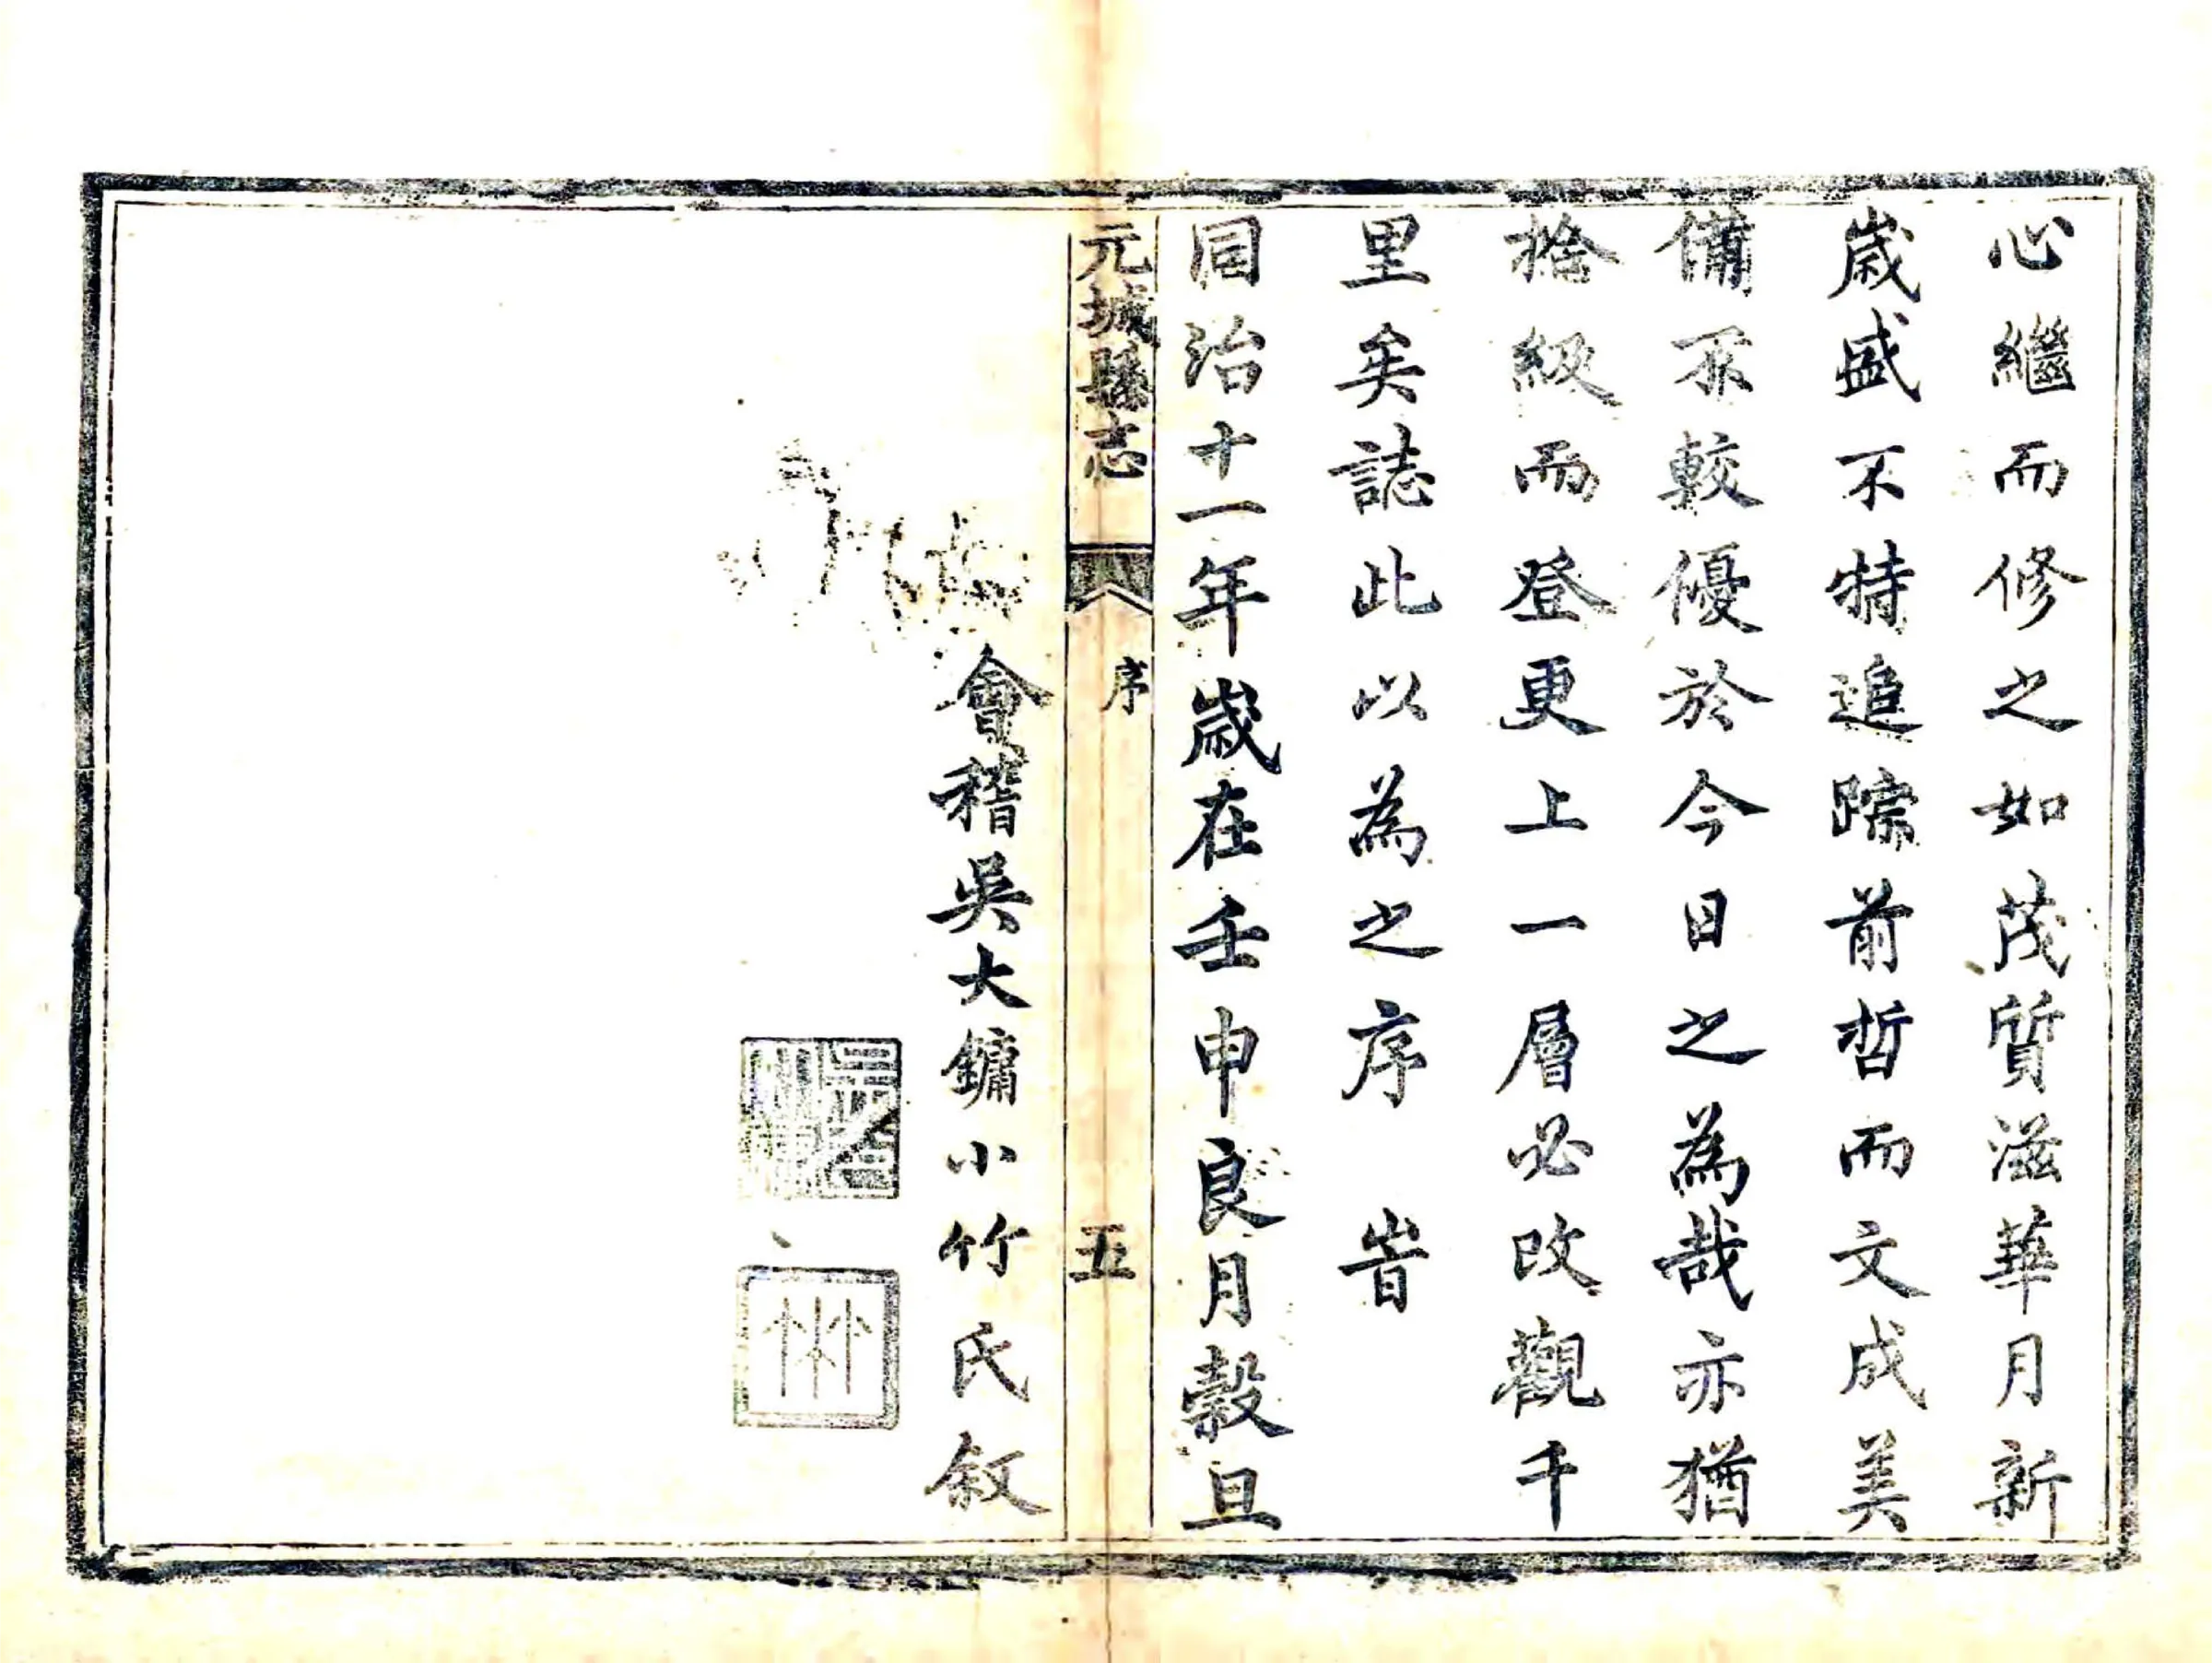 心繼而修之如茂質滋華月新
歲盛不特追踪前哲而文成美
備不較優於今日之為哉亦猶
拾級而登更上一層必改觀千
里矣誌此以為之序 旹
同治十一年歲在壬申良月穀旦
元城縣志
序
五
會稽吳大鏞小竹氏敘